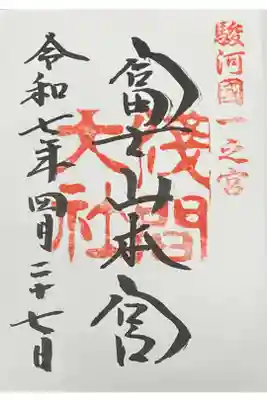 駿河國一之宮
富士山本宮
淺間大社
令和七年四月二十七日